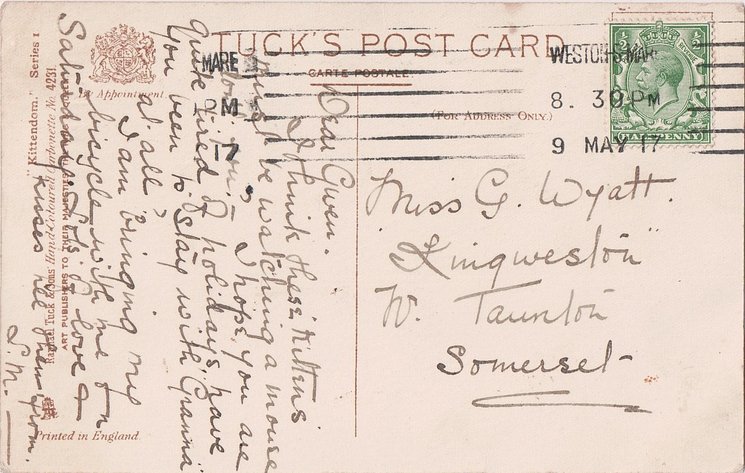 TUCK'S POST CARD
CARTE POSTALE
(FOR ADDRESS ONLY.)
By Appointment
"Kittendom." Series 1
Raphael Tuck & Sons' Hand Coloured Cartonette No. 4231
ART PUBLISHERS TO THEIR
Printed in England.
MARE
PM
17
WESTON-S-MARE
8. 30 PM
9 MAY 17
½ ½
HALFPENNY
Dear Gwen.
I think these Kittens
must be watching a mouse
I hope you are
quite tired of holidays, have
you been to stay with Granma
at all,
I am bringing my
bicycle with me on
Saturday. Lots of love &
kisses from
Miss G. Wyatt.
"Kingweston"
W. Taunton
Somerset